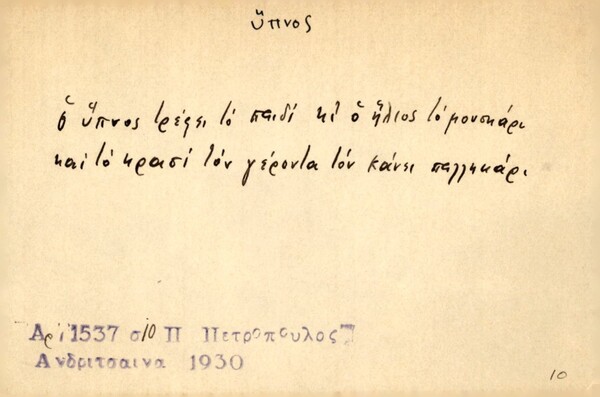 ὕπνος
ὁ ὕπνος τρέφει τό παιδί κι ὁ ἥλιος τό μουσκάρι
καί τό κρασί τόν γέροντα τόν κάνει παλληκάρι
Αρ. 1537 σ 10 Π Πετροπουλος
Ανδριτσαινα 1930
10